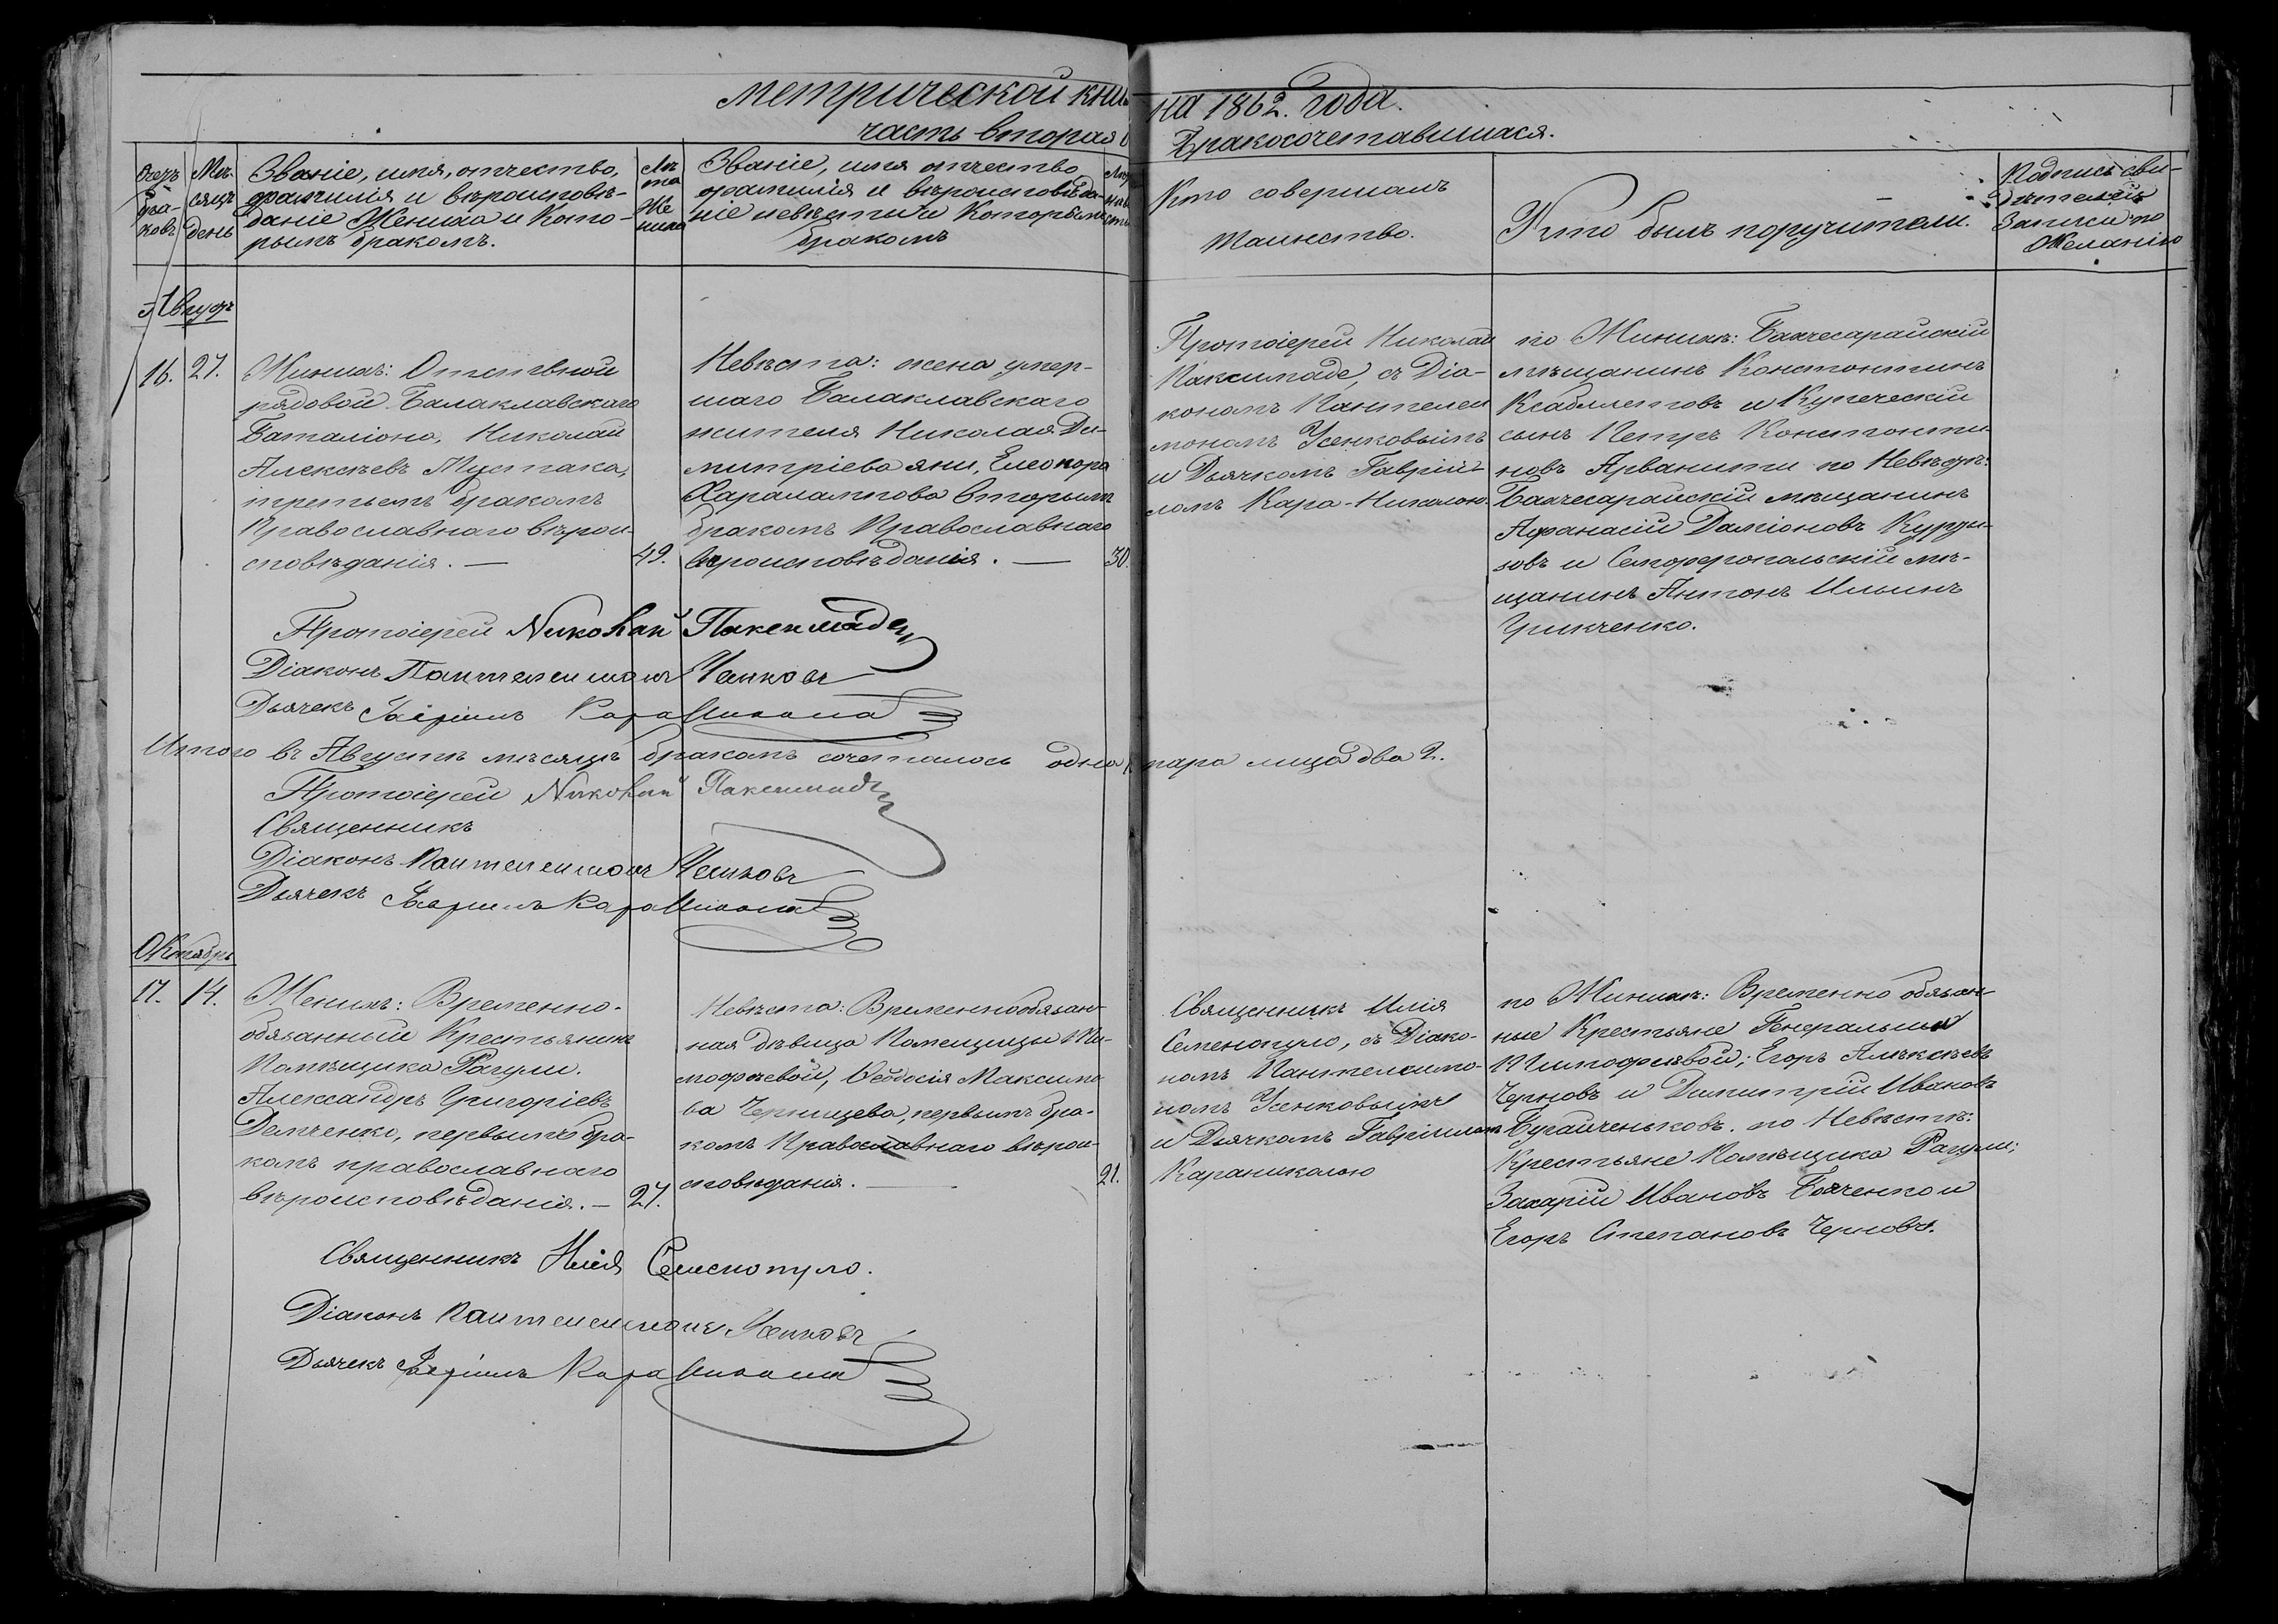 Метрической кни
на 1862. года.
часть вторая о
Бракосочетавшихся.
Счетъ бра-ковъ
Мѣ-сяцъ день
Званіе, имя, отчество,
фамилія и вѣроисповѣ-
даніе Жениха и Кото-
рымъ бракомъ.
Лѣ
та
Же
ниха
Званіе, имя отчество
фамилія и вѣроисповѣда-
ніе невѣсты и Которымъ
бракомъ
Кто совершалъ
таинство.
Кто былъ поручители.
Подпись сви-
дителей
Записи по
Желанію
Августъ
16. 27.
Жинихъ: Отставной
рядовой Балаклавскаго
Баталіона, Николай
Алексѣевъ Мустака,
третьемъ бракомъ
Православнаго вѣрои-
сповѣданія. — 49.
Невѣста: жена умер-
шаго Балаклавскаго
жителя Николая Ди-
митріева яни, Елеонора
Харалампова вторымъ
бракомъ Православнаго
вѣроисповѣданія. — 30.
Протоіерей Николай
Паксимаде, съ Діа-
кономъ Пантелеи
мономъ Усенковымъ
и Дьячкомъ Гавріи-
ломъ Кара-Николою.
по Жинихѣ: Бахчесарайскій
мѣщанинъ Константинъ
и Купеческій
сынъ Петръ Константи
новъ Арванити по Невѣстѣ:
Бахчесарайскій мѣщанинъ
Афанасій Даміоновъ Курзы-
зовъ и Семферопольскій мѣ-
щанинъ Антонъ Ильинъ
Грикченко.
Протоіерей Николай Паксимаде
Діаконъ Пантелеимонъ Усенковъ
Дьячекъ Гавріилъ КараНикола
Итого въ Августѣ мѣсяцѣ бракомъ сочеталось одна пара лица два 2.
Протоіерей Николай Паксимаде
Священникъ
Діаконъ Пантелеимонъ Усенковъ
Дьячекъ Гавріилъ КараНикола
Октябрь
17. 14.
Женихъ: Временно-
обязанный Крестьянинъ
Помѣщика Рагули.
Александръ Григоріевъ
Демченко, первымъ бра-
комъ православнаго
вѣроисповѣданія. — 27.
Невѣста: Временнообязан-
ная дѣвица Помещицы Ти-
мофѣевой, Ѳеодосія Максимо
ва Чернищева, первымъ бра-
комъ Православнаго вѣрои-
сповѣданія. — 21.
Священникъ Илія
Семенопуло, съ Діако-
номъ Пантелеимо-
номъ Усенковымъ
и Дьячкомъ Гавріиломъ
Караниколою
по Жинихѣ: Временно обязан-
ные Крестьяне Генеральши
Тимофѣевой; Егоръ Алѣксѣевъ
Черновъ и Димитрій Ивановъ
Бугайченьковъ. по Невѣстѣ:
Крестьяне Помѣщика Рагули;
Захарій Ивановъ Бойченко и
Егоръ Степановъ Черновъ.
Священникъ Илія Семенопуло.
Діаконъ Пантелеимонъ Усенковъ
Дьячекъ Гавріилъ КараНикола